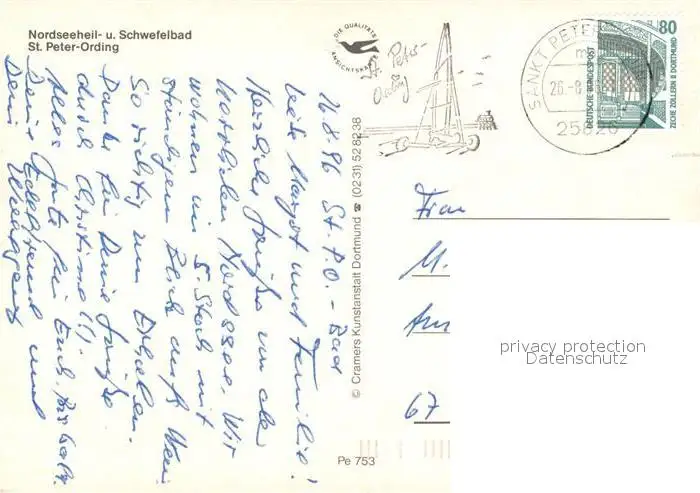 Nordseeheil- u. Schwefelbad
St. Peter-Ording
DIE QUALITÄTS
ANSICHTSKARTE
St. Peter-
Ording
SANKT PETER
26.-8
25826
80
DEUTSCHE BUNDESPOST
ZECHE ZOLLERN II DORTMUND
26.8.96 St. P.O. - Bad
Liebe Margot und Familie!
Herzliche Grüße von der
Nordsee. Wir
wohnen im 5. Stock mit
ständigem Blick aufs Meer.
So richtig zum Erholen.
Danke für Deine Grüße
durch Christine (!).
Alles Gute für Euch.
Deine und
Dein
© Cramers Kunstanstalt Dortmund ☎ (0231) 528238
Pe 753
Frau
M.
67
privacy protection
Datenschutz